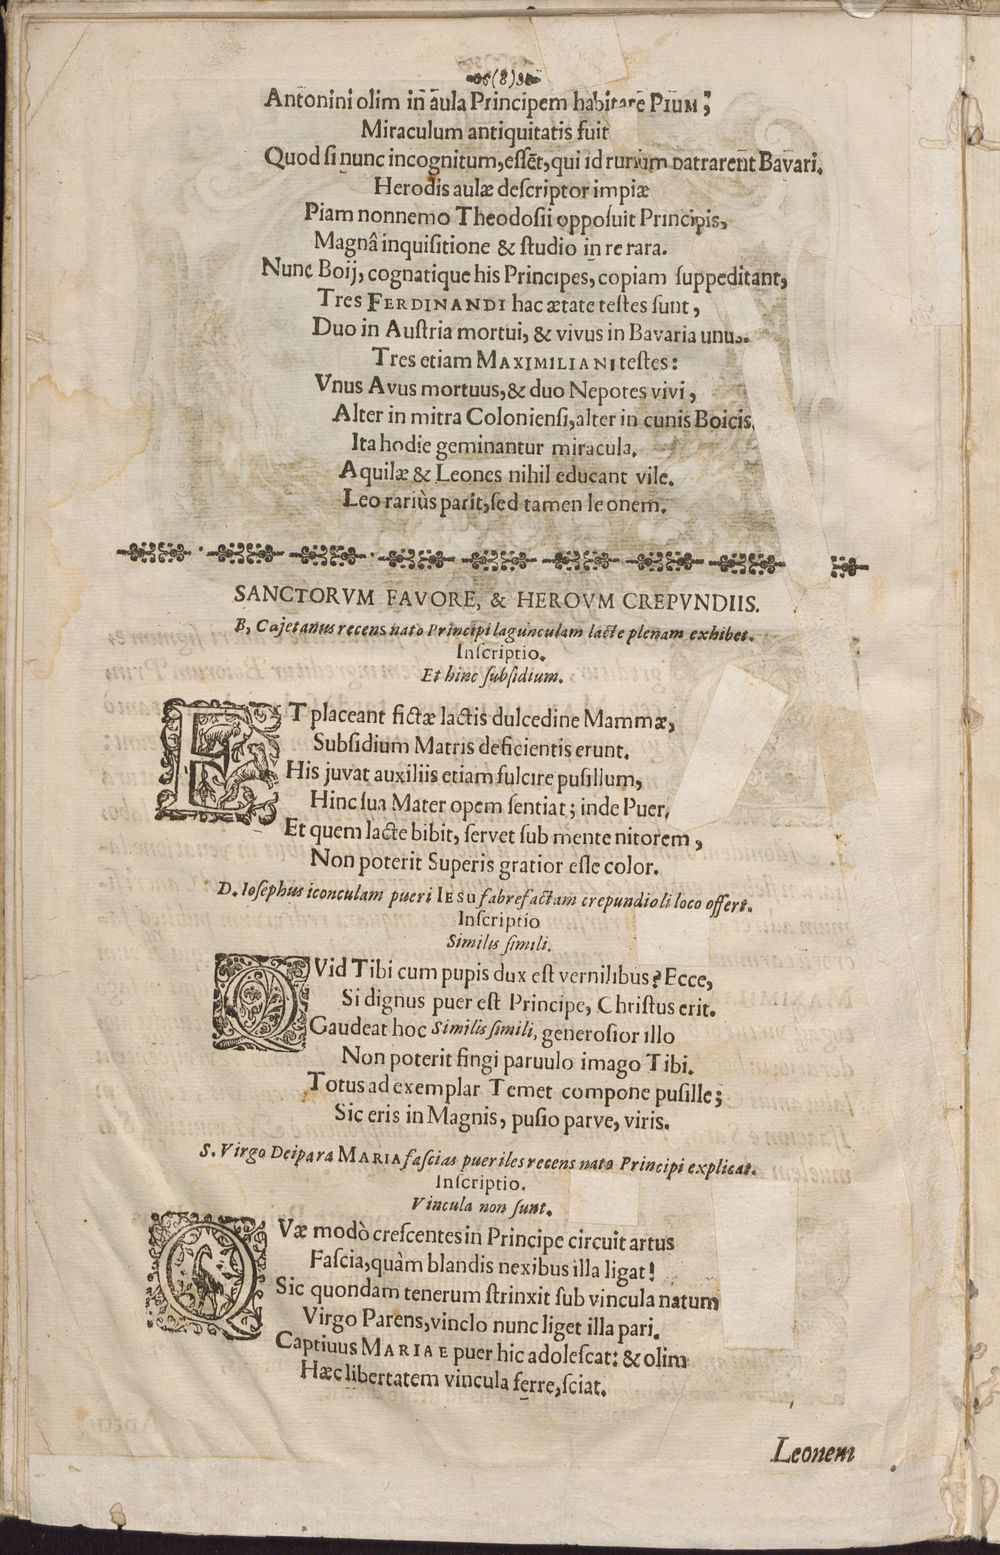 (8)
Antonini olim in aula Principem habitare PIUM;
Miraculum antiquitatis fuit
Quod si nunc incognitum, essēt, qui id rursum narrarent Bavari.
Herodis aulæ descriptor impiæ
Piam nonnemo Theodosii opposuit Principis,
Magnâ inquisitione & studio in re rara.
Nunc Boij, cognatique his Principes, copiam suppeditant,
Tres FERDINANDI hac ætate testes sunt,
Duo in Austria mortui, & vivus in Bavaria unus.
Tres etiam MAXIMILIANI testes:
Vnus Avus mortuus, & duo Nepotes vivi,
Alter in mitra Coloniensi, alter in cunis Boicis.
Ita hodie geminantur miracula.
Aquilæ & Leones nihil educant vile.
Leo rariùs parit, sed tamen leonem.
SANCTORVM FAVORE, & HEROVM CREPVNDIIS.
B, Cajetanus recens nato Principi lagunculam lacte plenam exhibet.
Inscriptio.
Et hinc subsidium.
ET placeant fictæ lactis dulcedine Mammæ,
Subsidium Matris deficientis erunt.
His juvat auxiliis etiam fulcire pusillum,
Hinc sua Mater opem sentiat; inde Puer,
Et quem lacte bibit, servet sub mente nitorem,
Non poterit Superis gratior esse color.
D. Iosephus iconculam pueri IESU fabrefactam crepundioli loco offert.
Inscriptio
Similis simili.
QVid Tibi cum pupis dux est vernilibus? Ecce,
Si dignus puer est Principe, Christus erit.
Gaudeat hoc Similis simili, generosior illo
Non poterit fingi paruulo imago Tibi.
Totus ad exemplar Temet compone pusille;
Sic eris in Magnis, pusio parve, viris.
S. Virgo Deipara MARIA fascias pueriles recens nato Principi explicat.
Inscriptio.
Vincula non sunt.
QVæ modò crescentes in Principe circuit artus
Fascia, quàm blandis nexibus illa ligat!
Sic quondam tenerum strinxit sub vincula natum
Virgo Parens, vinclo nunc liget illa pari.
Captiuus MARIAE puer hic adolescat: & olim
Hæc libertatem vincula ferre, sciat.
Leonem